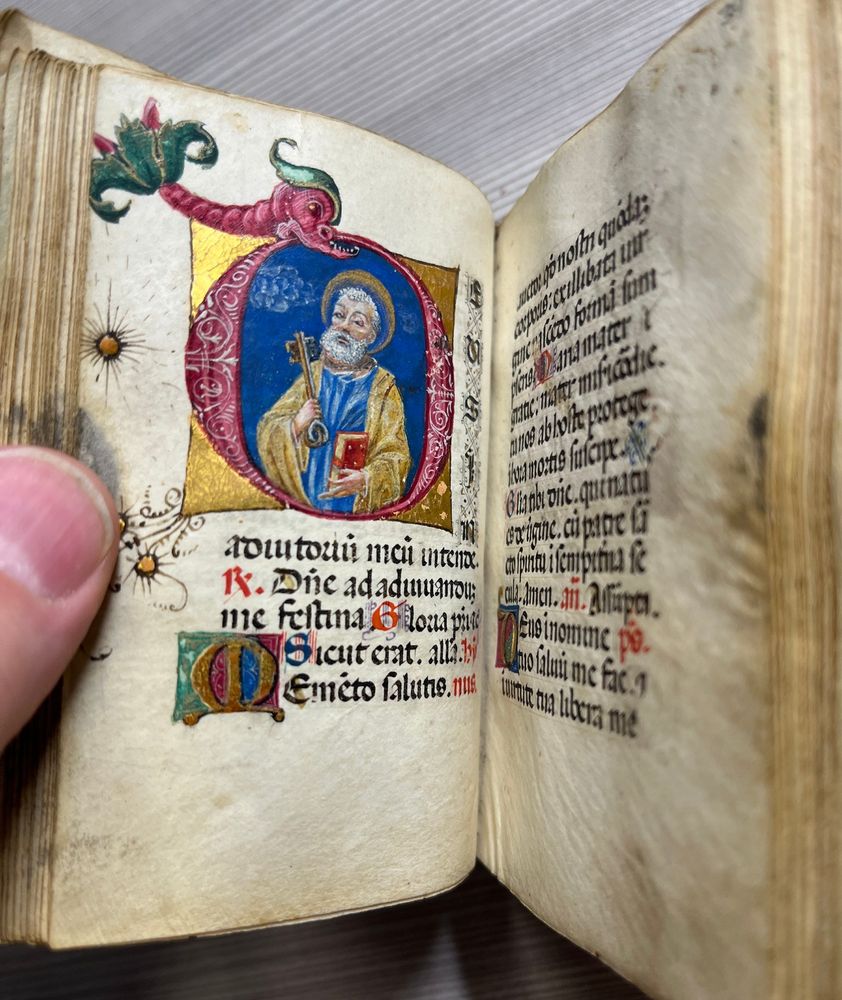 E
U
S
I
N
adiutoriū meū intende.
℟. Dñe ad adiuuanduz
me festina Gloria
Sicut erat. alla. hy
Memēto salutis. nus.
nostri quōdaz
corporis: ex illibata uir
gine nascēdo formā sum
pseris. Maria mater
gratie: mater mis̄icōdie.
tu nos ab hoste protege
hora mortis suscipe.
Glīa tibi dñe. qui natus
es de uigine. cū patre sā
cto spiritu ī sempit̄na se
cula. amen. añ. Assūpta.
Deus ī nomine ps.
tuo saluū me fac. ⁊
ī uirtute tua libera me